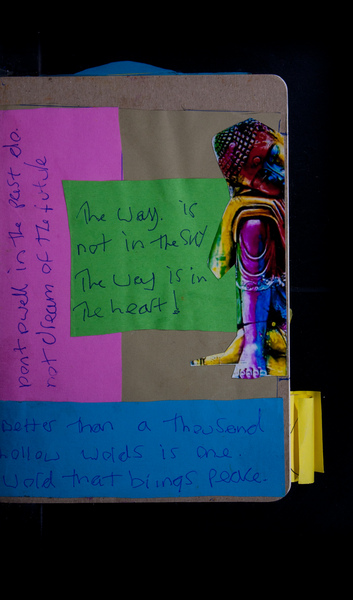 dont dwell in the past do.
not dream of the future
The way. is
not in the sky
The way is in
The heart!
Better than a thousand
hollow words is one.
word that brings peace.